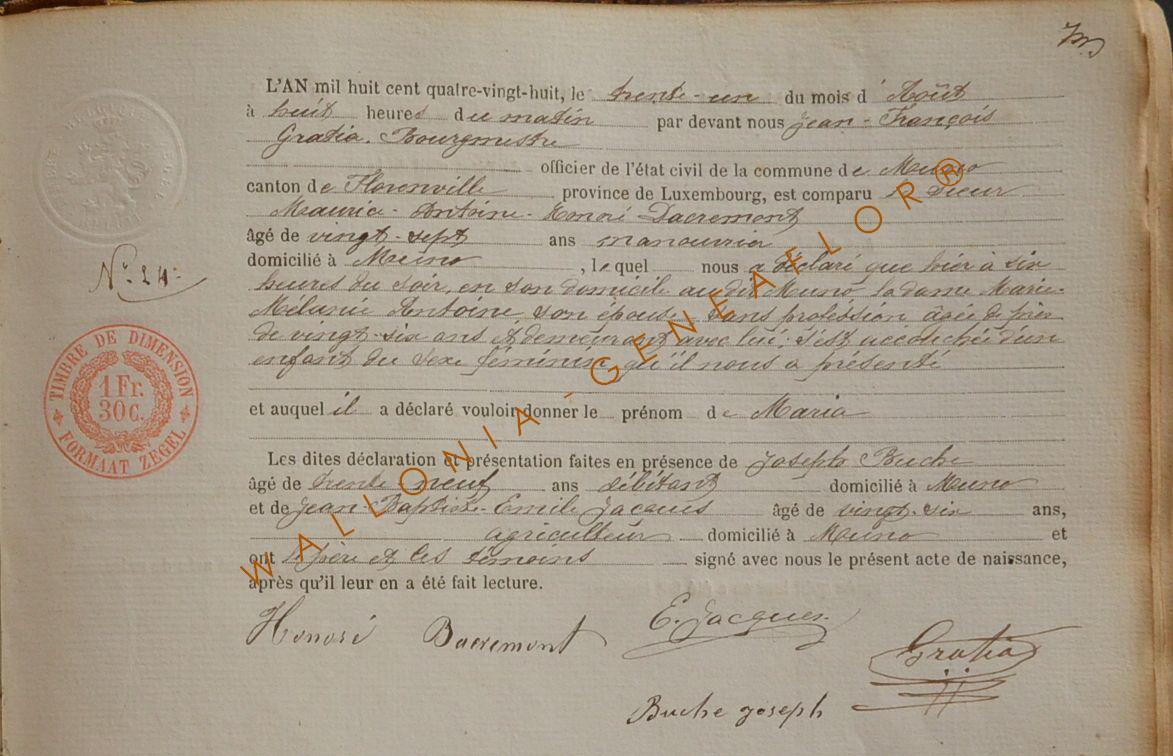 L'AN mil huit cent quatre-vingt-huit, le trente-un du mois d'Août
à huit heures du matin par devant nous Jean-François
Gratia, Bourgmestre
officier de l'état civil de la commune de Muno
canton de Florenville province de Luxembourg, est comparu le Sieur
Maurice-Antoine-Honoré Dacremont
âgé de vingt-sept ans manouvrier
domicilié à Muno, lequel nous a déclaré que hier à six
heures du soir, en son domicile audit Muno, la dame Marie-
Mélanie Antoine, son épouse, sans profession agée de
de vingt-six ans et demeurant avec lui, s'est accouchée d'un
enfant du sexe féminin, qu'il nous a présenté
et auquel il a déclaré vouloir donner le prénom de Maria
Les dites déclaration et présentation faites en présence de Joseph Buche
âgé de trente neuf ans débitant domicilié à Muno
et de Jean-Baptiste-Emile Jacques âgé de vingt-six ans,
agriculteur domicilié à Muno et
ont le père et les témoins signé avec nous le présent acte de naissance,
après qu'il leur en a été fait lecture.
N° 24.
TIMBRE DE DIMENSION
1 Fr.
30 C.
FORMAAT ZEGEL
Honoré Dacremont
E. Jacques.
Gratia
Buche joseph
WALLONIA-GENEAFLOR®